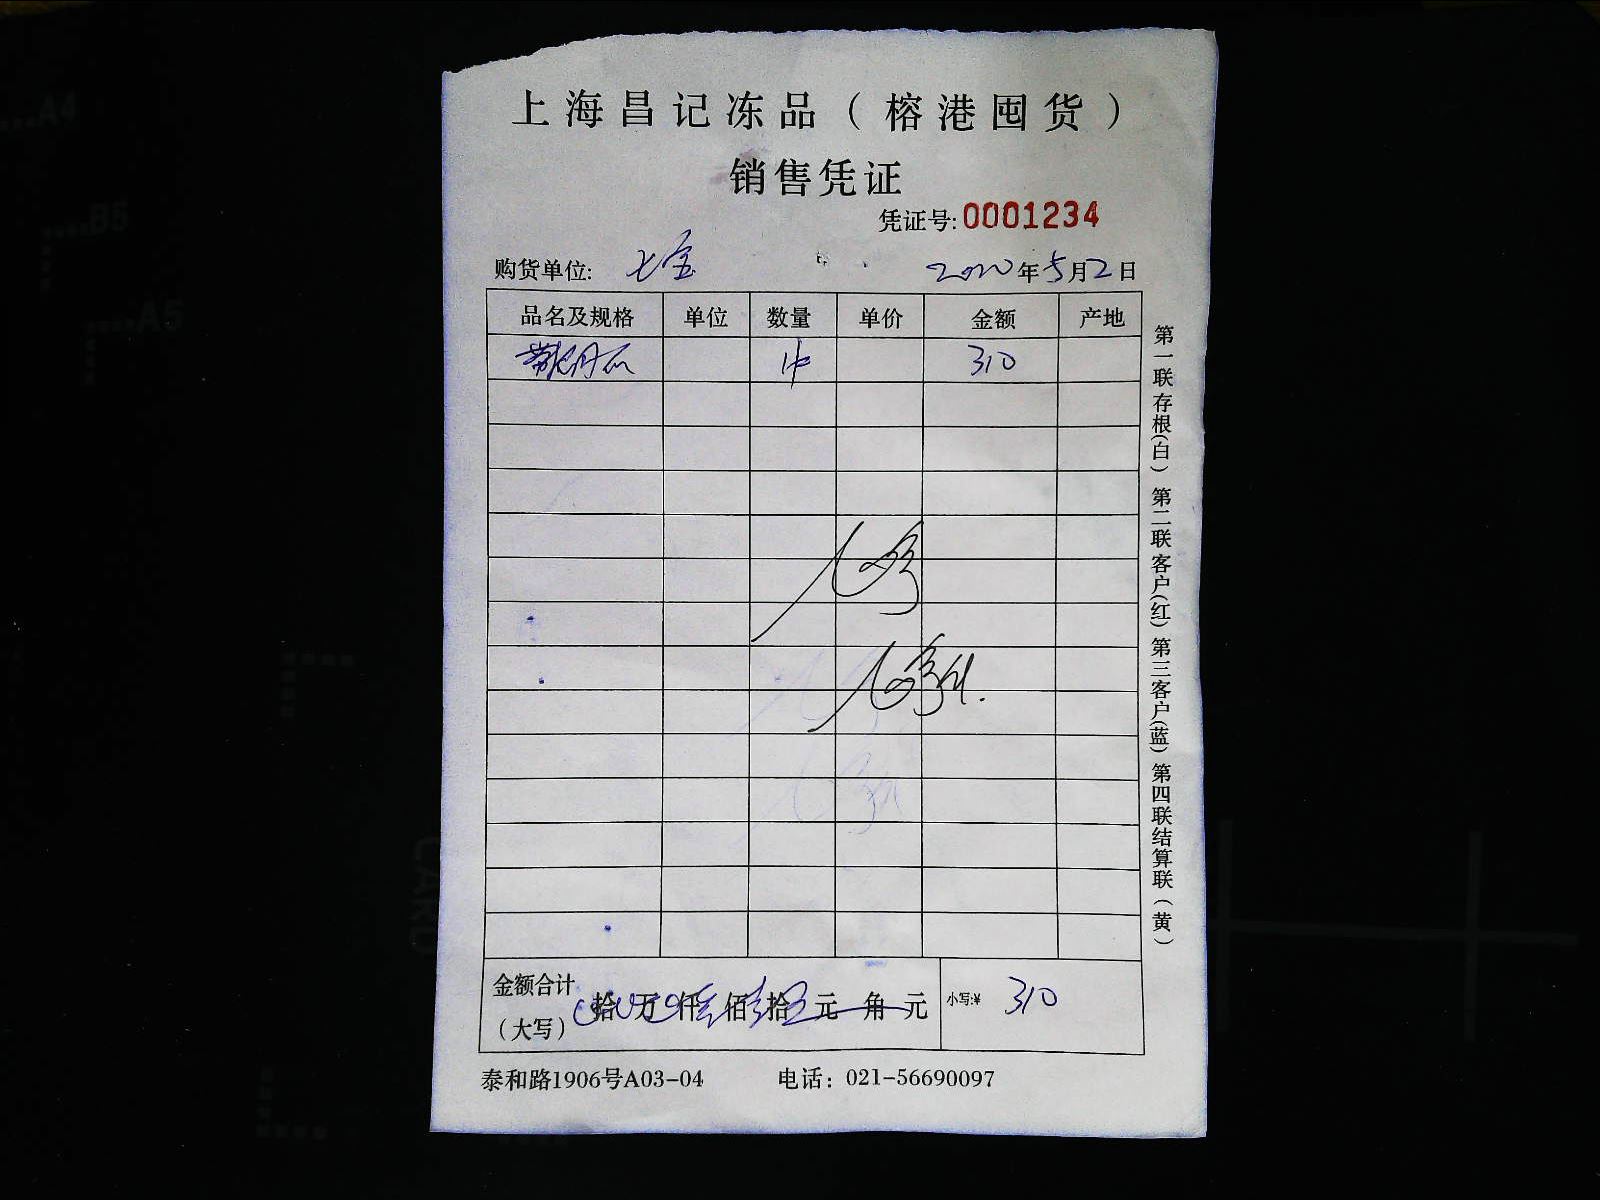 上海昌记冻品（榕港囤货）
销售凭证
凭证号:0001234
购货单位: 七宝 2020年5月2日
品名及规格 单位 数量 单价 金额 产地
1件 310
金额合计（大写） 拾 万 仟 佰 拾 元 角 元 小写:¥ 310
泰和路1906号A03-04 电话：021-56690097
第一联存根(白) 第二联客户(红) 第三客户(蓝) 第四联结算联(黄)